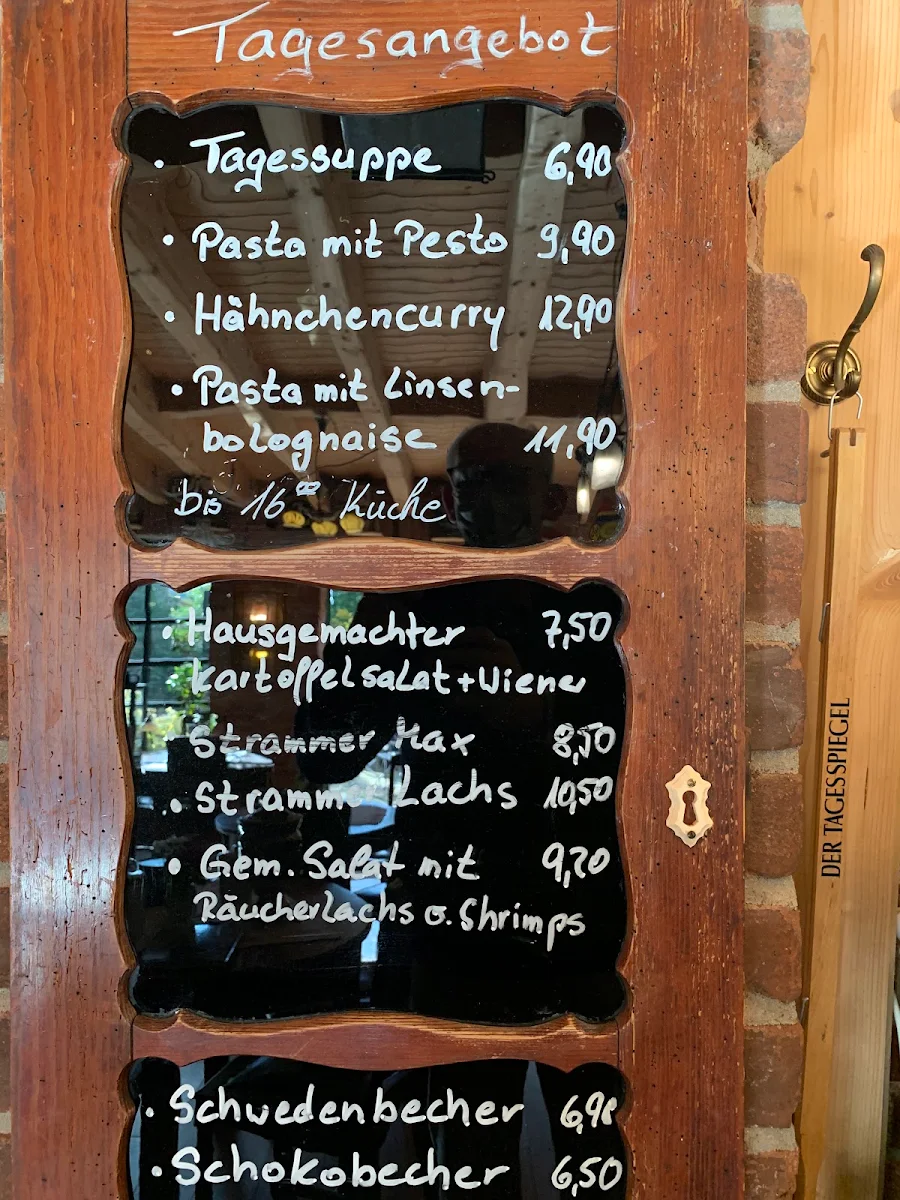 Tagesangebot
· Tagessuppe 6,90
· Pasta mit Pesto 9,90
· Hähnchencurry 12,90
· Pasta mit Linsen-
bolognaise 11,90
bis 16°° Küche
· Hausgemachter 7,50
Kartoffelsalat+Wiener
· Strammer Max 8,50
· Strammer Lachs 10,50
· Gem. Salat mit 9,20
Räucherlachs o. Shrimps
· Schwedenbecher 6,90
· Schokobecher 6,50
DER TAGESSPIEGEL